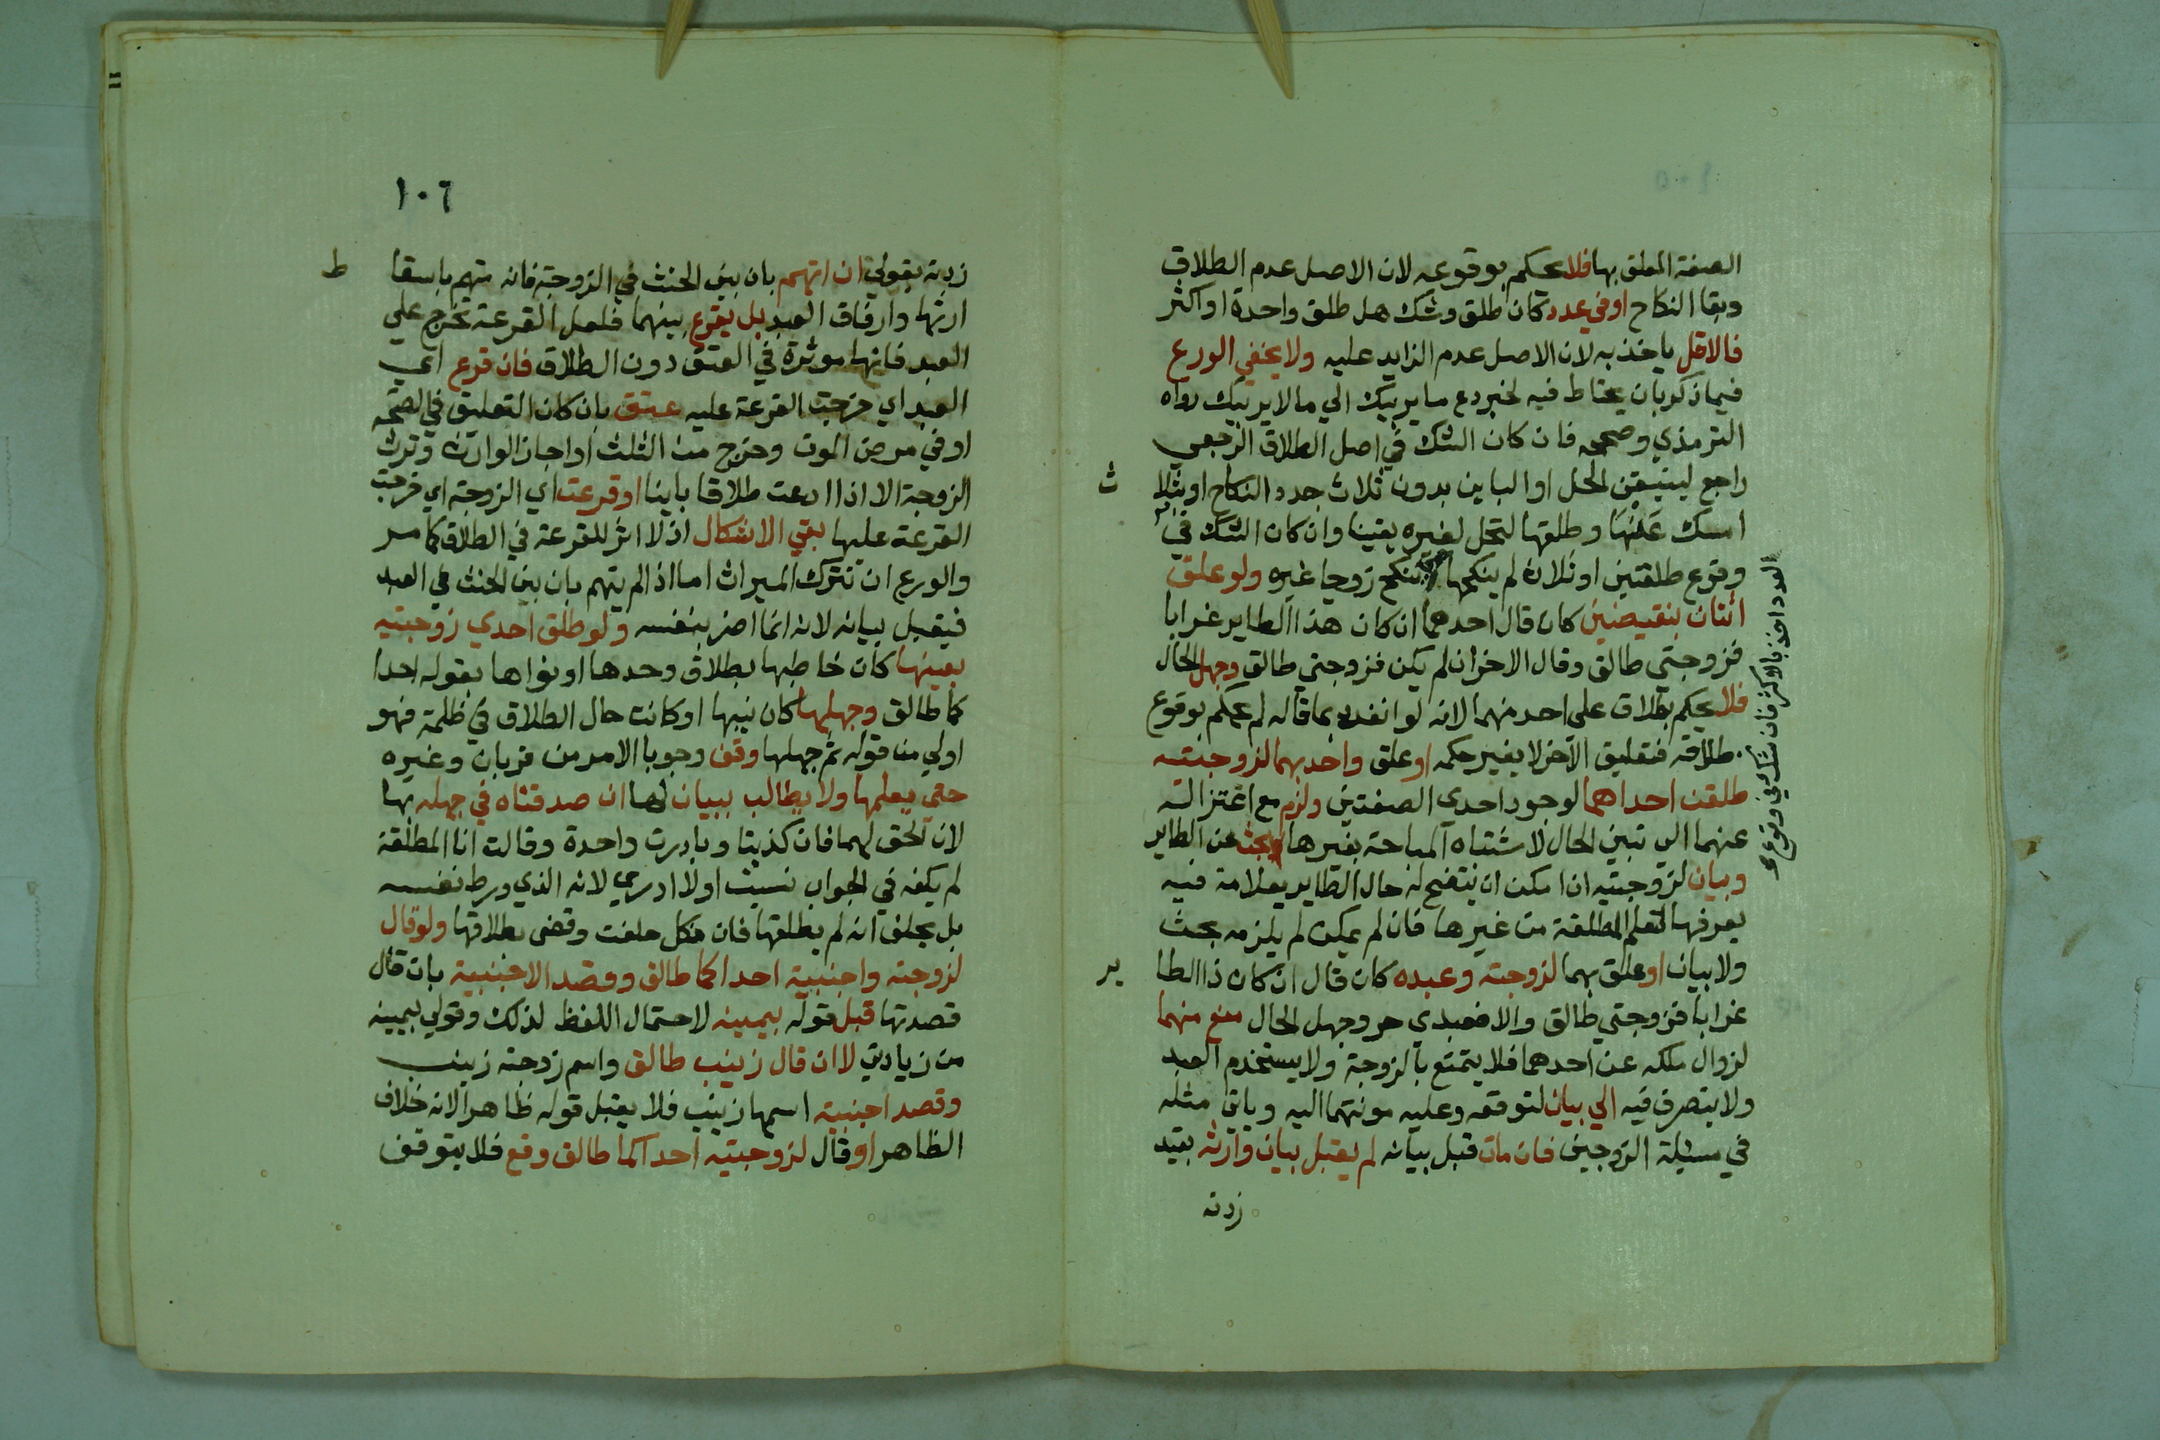 الصفة المعلق بها فلا يحكم بوقوعه لان الاصل عدم الطلاق
وبقا النكاح او في عدد كان طلق وشك هل طلق واحدة او اكثر
فالاقل ياخذ به لان الاصل عدم الزايد عليه ولا يخفي الورع
فيما ذكر بان يحتاط فيه لخبر دع ما يريبك الي ما لا يريبك رواه
الترمذي وصححه فان كان الشك في اصل الطلاق الرجعي
راجع ليتيقن الحل او الباين بدون ثلاث جدد النكاح او بثلا ث
امسك عنها وطلقها لتحل لغيره يقينا وان كان الشك في
وقوع طلقتين او ثلاث لم ينكحها حتى تنكح زوجا غيره ولو علق
اثنان بنقيضين كان قال احدهما ان كان هذا الطاير غرابا
فزوجتي طالق وقال الاخر ان لم يكن فزوجتي طالق وجهل الحال
فلا يحكم بطلاق على احد منهما لانه لو انفرد بما قاله لم يحكم بوقوع
طلاقه فتعليق الآخر لا يغير حكمه او علق واحد بهما لزوجتيه
طلقت احداهما لوجود احدي الصفتين ولزم مع اعتزاله
عنهما الى تبين الحال لاشتباه المباحة بغيرها بحث عن الطاير
وبيان لزوجتيه ان امكن ان يتضح له حال الطاير بعلامة فيه
يعرفها لتعلم المطلقة من غيرها فان لم يمكن لم يلزمه بحث
ولا بيان او علق بهما لزوجته وعبده كان قال ان كان ذا الطا ير
غرابا فزوجتي طالق والا فعبدي حر وجهل الحال منع منهما
لزوال ملكه عن احدهما فلا يتمتع بالزوجة ولا يستخدم العبد
ولا يتصرف فيه الي بيان لتوقعه وعليه مونتهما اليه وياتي مثله
في مسئلة الزوجين فان مات قبل بيانه لم يقبل بيان وارثه بقيد
زدته
العدد اخذ بالاكثر فان شك في وقوع
١٠٦
زدته بقولي ان اتهم بان بين الحنث في الزوجة فانه متهم باسقا ط
ارثها وارقاق العبد بل يقرع بينهما فلعل القرعة تخرج علي
العبد فانها موثرة في العتق دون الطلاق فان قرع اي
العبد اي خرجت القرعة عليه عتق بان كان التعليق في الصحة
او في مرض الموت وخرج من الثلث او اجاز الوارث وترث
الزوجة الا اذا ادعت طلاقا باينا او قرعت اي الزوجة اي خرجت
القرعة عليها بقي الاشكال اذ لا اثر للقرعة في الطلاق كما مر
والورع ان تترك الميراث اما اذا لم يتهم بان بين الحنث في العبد
فيقبل بيانه لانه انما اضر بنفسه ولو طلق احدي زوجتيه
بعينها كان خاطبها بطلاق وحدها او نواها بقوله احدا
كما طالق وجهلها كان نسيها او كانت حال الطلاق في ظلمة فهو
اولي من قوله ثم جهلها وقف وجوبا الامر من قربان وغيره
حتي يعلمها ولا يطالب ببيان لها ان صدقتاه في جهله بها
لان الحق لهما فان كذبتا وبادرت واحدة وقالت انا المطلقة
لم يكفه في الجواب نسيت او لا ادري لانه الذي ورط نفسه
بل يحلف انه لم يطلقها فان نكل حلفت وقضى بطلاقها ولو قال
لزوجته واجنبية احداكما طالق وقصد الاجنبية بان قال
قصدتها قبل قوله بيمينه لاحتمال اللفظ لذلك وقولي بيمينه
من زيادتي لا ان قال زينب طالق واسم زوجته زينب
وقصد اجنبية اسمها زينب فلا يقبل قوله ظاهرا لانه خلاف
الظاهر او قال لزوجتيه احداكما طالق وقع فلا يتوقف